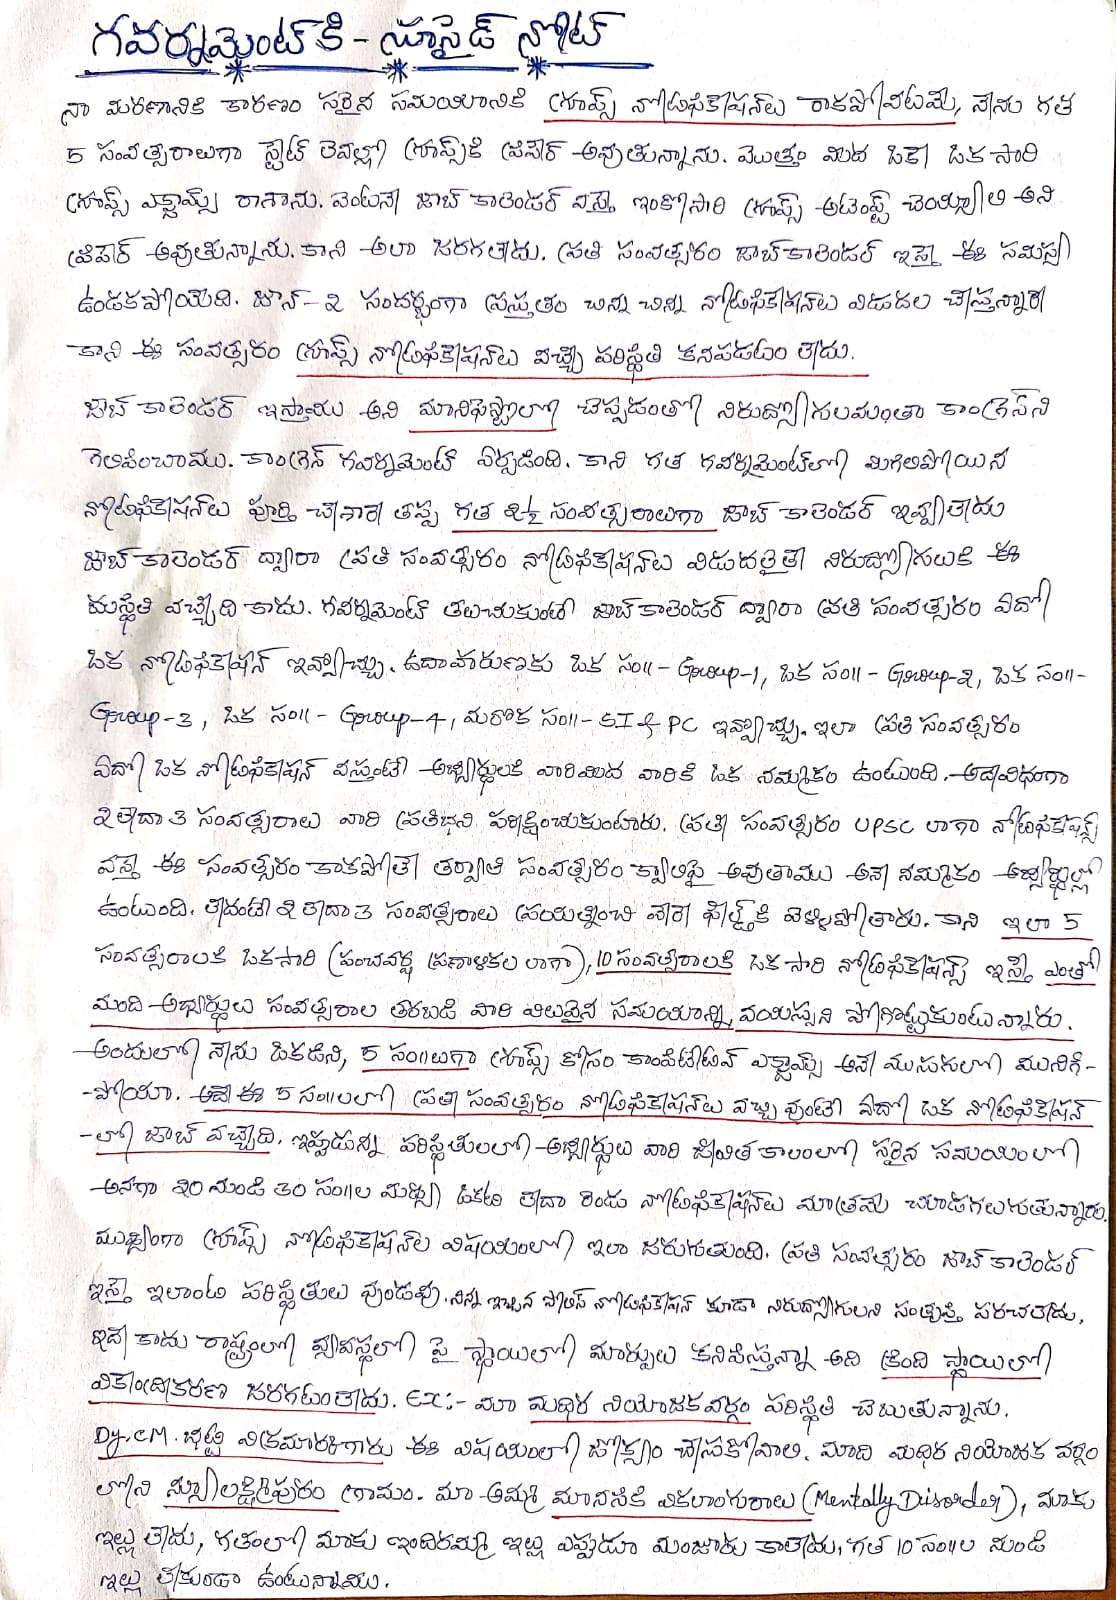 గవర్నమెంట్ కి - సూసైడ్ నోట్
నా మరణానికి కారణం సరైన సమయానికి గ్రూప్స్ నోటిఫికేషన్లు రాకపోవటమే, నేను గత
5 సంవత్సరాలుగా స్టేట్ లెవల్లో గ్రూప్స్‌కి ప్రిపేర్ అవుతున్నాను. మొత్తం మీద ఒకే ఒకసారి
గ్రూప్స్ ఎక్జామ్స్ రాశాను. వెంటనే జాబ్ కాలెండర్ వస్తే ఇంకోసారి గ్రూప్స్ అటెంప్ట్ చెయ్యాలి అని
ప్రిపేర్ అవుతున్నాను. కాని అలా జరగలేదు. ప్రతి సంవత్సరం జాబ్ కాలెండర్ ఇస్తే ఈ సమస్య
ఉండకపోయేది. జూన్-2 సందర్భంగా ప్రస్తుతం చిన్న చిన్న నోటిఫికేషన్లు విడుదల చేస్తున్నారే
కాని ఈ సంవత్సరం గ్రూప్స్ నోటిఫికేషన్లు వచ్చే పరిస్థితి కనపడటం లేదు.
జాబ్ కాలెండర్ ఇస్తాము అని మానిఫెస్టోలో చెప్పడంతో నిరుద్యోగులమంతా కాంగ్రెస్‌ని
గెలిపించాము. కాంగ్రెస్ గవర్నమెంట్ ఏర్పడింది. కాని గత గవర్నమెంట్‌లో మిగిలిపోయిన
నోటిఫికేషన్లు పూర్తి చేశారే తప్ప గత 2½ సంవత్సరాలుగా జాబ్ కాలెండర్ ఇవ్వలేదు
జాబ్ కాలెండర్ ద్వారా ప్రతి సంవత్సరం నోటిఫికేషన్లు విడుదలైతే నిరుద్యోగులకి ఈ
దుస్థితి వచ్చేది కాదు. గవర్నమెంట్ తలచుకుంటే జాబ్ కాలెండర్ ద్వారా ప్రతి సంవత్సరం ఏదో
ఒక నోటిఫికేషన్ ఇవ్వొచ్చు. ఉదాహరణకు ఒక సం॥ - Group-1, ఒక సం॥ - Group-2, ఒక సం॥-
Group-3, ఒక సం॥ - Group-4, మరొక సం॥- SI & PC ఇవ్వొచ్చు. ఇలా ప్రతి సంవత్సరం
ఏదో ఒక నోటిఫికేషన్ వస్తుంటే అభ్యర్థులకి వారిమీద వారికి ఒక నమ్మకం ఉంటుంది. అదేవిధంగా
2 లేదా 3 సంవత్సరాలు వారి ప్రతిభని పరీక్షించుకుంటారు. ప్రతి సంవత్సరం UPSC లాగా నోటిఫికేషన్స్
వస్తే ఈ సంవత్సరం కాకపోతే తర్వాతి సంవత్సరం క్వాలిఫై అవుతాము అనే నమ్మకం అభ్యర్థుల్లో
ఉంటుంది. లేదంటే 2 లేదా 3 సంవత్సరాలు ప్రయత్నించి వేరే ఫీల్డ్‌కి వెళ్ళిపోతారు. కాని ఇలా 5
సంవత్సరాలకి ఒకసారి (పంచవర్ష ప్రణాళికల లాగా), 10 సంవత్సరాలకి ఒకసారి నోటిఫికేషన్స్ ఇస్తే ఎంతో
మంది అభ్యర్థులు సంవత్సరాల తరబడి వారి విలువైన సమయాన్ని, వయస్సుని పోగొట్టుకుంటున్నారు.
అందులో నేను ఒకడిని, 5 సం॥లుగా గ్రూప్స్ కోసం కాంపిటీటివ్ ఎక్జామ్స్ అనే ముసుగులో మునిగి-
-పోయా. అదే ఈ 5 సం॥లలో ప్రతి సంవత్సరం నోటిఫికేషన్లు వచ్చి వుంటే ఏదో ఒక నోటిఫికేషన్
-లో జాబ్ వచ్చేది. ఇప్పుడున్న పరిస్థితులలో అభ్యర్థులు వారి జీవిత కాలంలో సరైన సమయంలో
అనగా 20 నుండి 30 సం॥ల మధ్య ఒకటి లేదా రెండు నోటిఫికేషన్లు మాత్రమే చూడగలుగుతున్నారు.
ముఖ్యంగా గ్రూప్స్ నోటిఫికేషన్ల విషయంలో ఇలా జరుగుతుంది. ప్రతి సంవత్సరం జాబ్ కాలెండర్
ఇస్తే ఇలాంటి పరిస్థితులు వుండవు. నిన్న ఇచ్చిన పోలీస్ నోటిఫికేషన్ కూడా నిరుద్యోగులని సంతృప్తి పరచలేదు.
ఇదే కాదు రాష్ట్రంలో వ్యవస్థలో పై స్థాయిలో మార్పులు కనిపిస్తున్నా అది క్రింది స్థాయిలో
వికేంద్రీకరణ జరగటంలేదు. EX:- మా మధిర నియోజకవర్గం పరిస్థితి చెబుతున్నాను.
Dy.CM. భట్టి విక్రమార్కగారు ఈ విషయంలో జోక్యం చేసుకోవాలి. మాది మధిర నియోజక వర్గం
లోని సిద్ధి లక్ష్మీపురం గ్రామం. మా అమ్మ మానసిక వికలాంగురాలు (Mentally Disorder), మాకు
ఇల్లు లేదు, గతంలో మాకు ఇందిరమ్మ ఇల్లు ఎప్పుడూ మంజూరు కాలేదు, గత 10 సం॥ల నుండి
ఇల్లు లేకుండా ఉంటున్నాము.